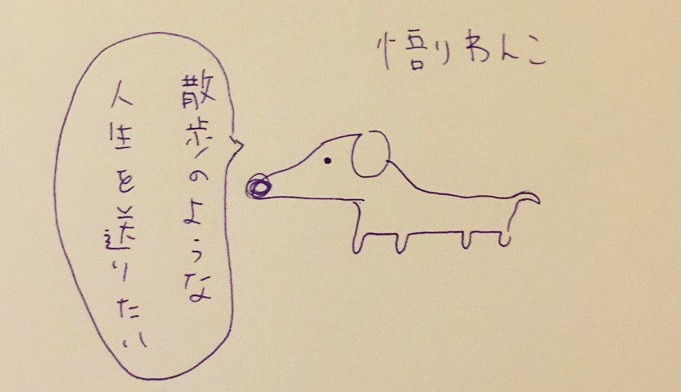 悟りわんこ
散歩のような
人生を送りたい